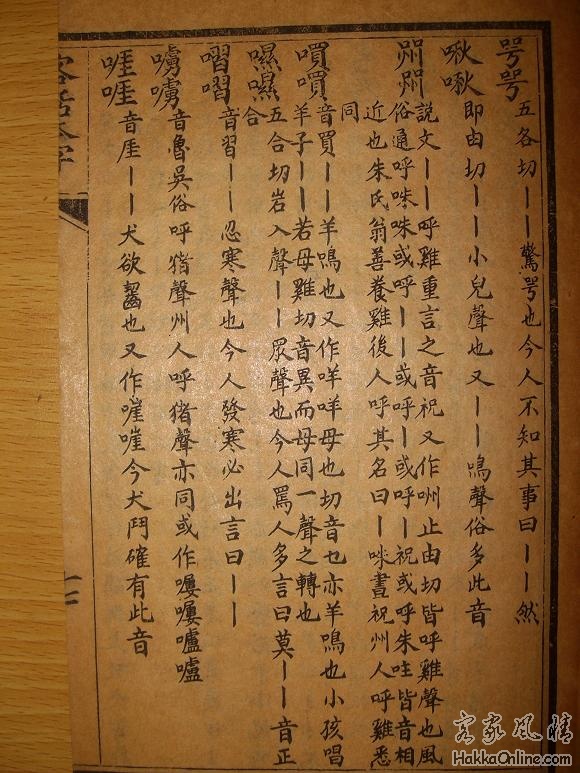 咢咢 五各切——驚咢也今人不知其事曰——然
啾啾 即由切——小兒聲也又——鳴聲俗多此音
喌喌 說文——呼雞重言之音祝又作止由切皆呼雞聲也風
俗通呼咮咮或呼——或呼—或呼—祝或呼朱皆音相
近也朱氏翁善養雞後人呼其名曰—咮晝祝州人呼雞悉
同
嘪嘪 音買——羊鳴也又作咩咩母也切音乜亦羊鳴也小孩唱
羊子——若母雞切音異而母同一聲之轉也
五合切岩入聲——眾聲也今人罵人多言曰莫——音正
合
音習——忍寒聲也今人發寒必出言曰——
音魯吳俗呼猪聲州人呼猪聲亦同或作嚧嚧
啀啀 音厓——犬欲齧也又作嘊嘊今犬鬥確有此音
客話本字
客家風情
HakkaOnline.com